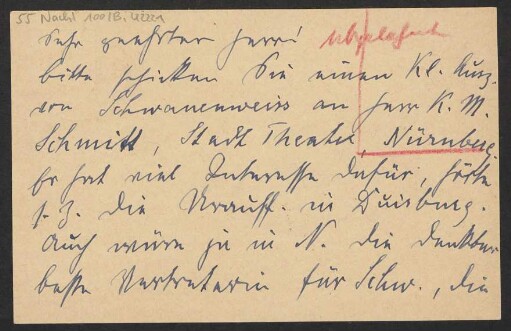 55 Nachl 100/B,
Sehr geehrter Herr!
bitte schicken Sie einen Kl. Ausz.
von Schwanenweiss an Herr K. M.
Schmitt, Stadt Theater, Nürnberg.
Er hat viel Interesse dafür, hörte
s. Z. die Urauff. in Duisburg.
Auch wäre ja in N. die denkbar
beste Vertreterin für Schw., die